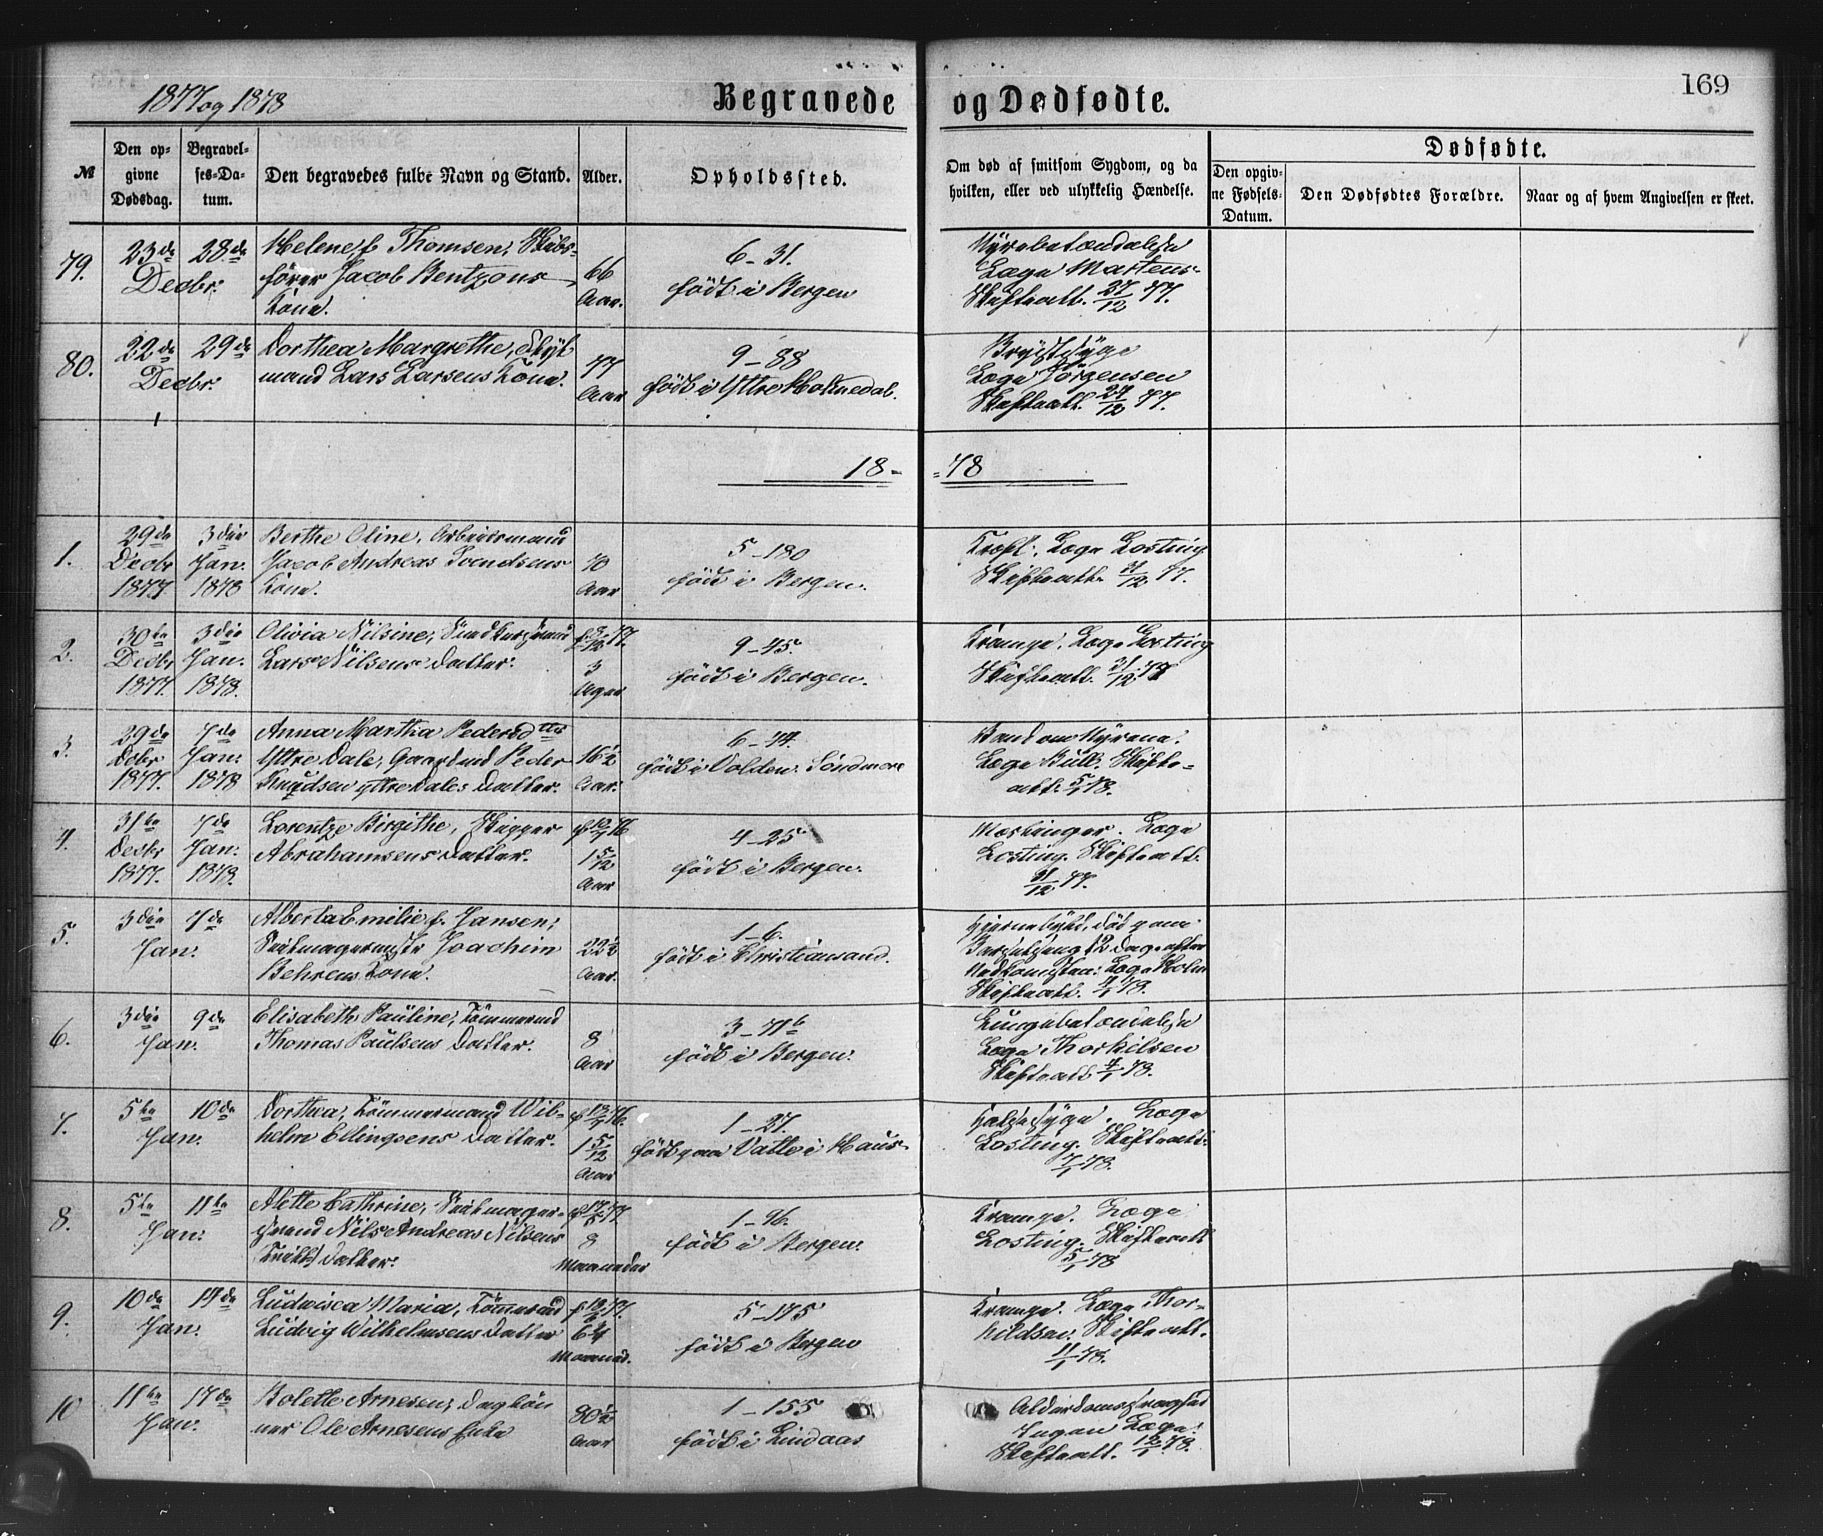 1877 og 1878
Begravede og Dødfødte.
169
№
Den opgivne Dødsdag.
Begravelses-Datum.
Den begravedes fulde Navn og Stand.
Alder.
Opholdssted.
Om død af smitsom Sygdom, og da hvilken, eller ved ulykkelig Hændelse.
Dødfødte.
Den opgivne Fødsels-Datum.
Den Dødfødtes Forældre.
Naar og af hvem Angivelsen er skeet.
79. 23de Decbr. 28de
Helene f. Thomsen, Skibs-
fører Jacob Bentzons
Kone.
66 Aar.
6-31.
født i Bergen
Nyrebetændelse
Læge Martens
Skifteatt. 27/12 77.
80. 22de Decbr. 29de
Dorthea Margrethe,
mand Lars Larsens Kone.
77 Aar
9-88
født i Yttre Holmedal.
Brystsyge
Læge Jörgensen
Skifteatt. 27/12 77.
18-78
1. 29de Decbr 1877. 3die Jan. 1878
Berthe Oline, Arbeidsmand
Jacob Andreas Svendsens
Kone.
70 Aar
5-180
født i Bergen.
Kræft. Læge Losting
Skifteatt. 31/12 77.
2. 30te Decbr 1877. 3die Jan. 1878.
Olivia Nilsine,
Lars Nilsens Datter.
3 Uger
9-45.
født i Bergen.
Krampe. Læge Losting
Skifteatt. 31/12 78
3. 29de Dcbr 1877. 7de Jan. 1878
Anna Martha Pedersdtter
Yttre Dale, Gaardmd Peder
Knudsen yttre Dales Datter.
16½ Aar.
6-44.
født i Volden. Søndmøre
Vand om Nyrene.
Læge Bull. Skifte-
att. 5/1 78.
4. 31te Decbr 1877. 7de Jan. 1878.
Lorentze Birgithe, Skipper
Abrahamsens Datter.
f 10/7 76
1 5/12 Aar
4-25
født i Bergen.
Mæslinger. Læge
Losting. Skifteatt.
31/12 77.
5. 3die Jan. 7de
Alberta Emilie f. Jansen,
Seilmagermester Joachim
Behrens Kone.
22½ Aar.
1-6.
født i Christiansand.
Hjernebetd, død paa
Barselseng 12 Dage efter
Nedkomsten: Læge Holm
Skifteatt. 4/1 78.
6. 3die Jan. 9de
Elisabeth Pauline, Tømmermd
Thomas Paulsens Datter.
8 Aar
3-71b
født i Bergen.
Lungebetændelse
Læge Thorkilsen
Skifteatt 4/1 78.
7. 5te Jan. 10de
Dorthea, Tømmermand Wil-
helm Ellingsens Datter.
1 5/12 Aar
1-27.
født paa Valle i Haus
Halsesyge. Læge
Losting. Skifteatt.
7/1 78.
8. 5te Jan. 11te
Alette Cathrine, Seilmager-
svend Nils Andreas Nilsens
Datter.
8 Maaneder
1-96.
født i Bergen.
Krampe. Læge
Losting. Skifteatt
5/1 78
9. 10de Jan. 17de
Ludvisca Maria, Tømmermd
Ludvig Wilhelmsens Datter
Maaned.
5-175
født i Bergen
Krampe. Læge Thor-
kildsen. Skifteatt.
11/1 78.
10 11te Jan. 17de
Bolette Arnesen, Dagløn
ner Ole Arnesens Enke
80½ Aar
1-155
født i Lindaas
Alderdomssvaghed
Ingen Læge.
Skifteatt. 12/1 78.